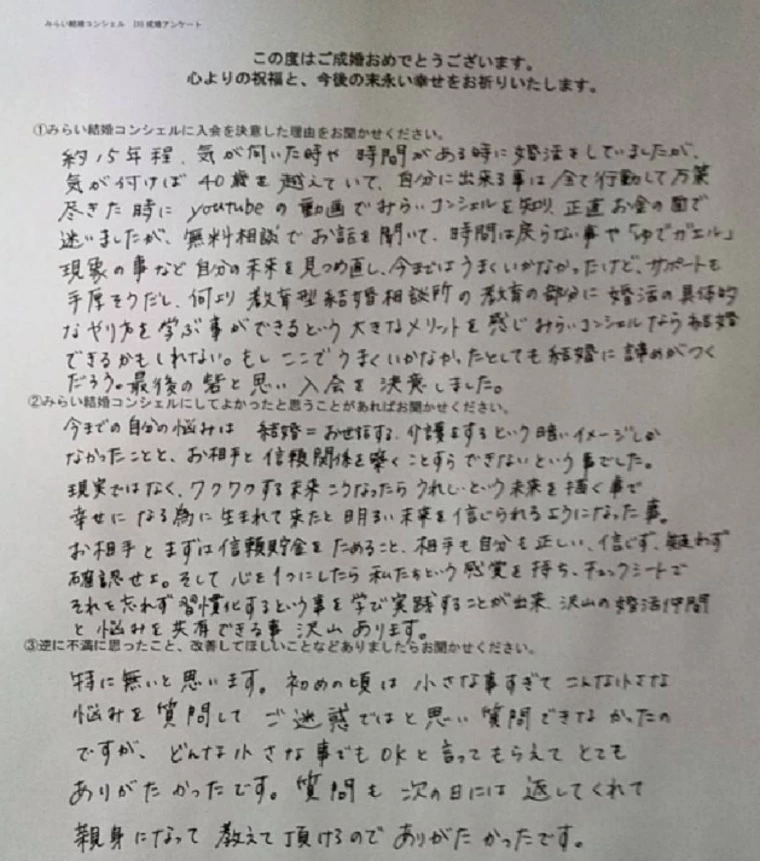 みらい結婚コンシェル 成婚アンケート
この度はご成婚おめでとうございます。
心よりの祝福と、今後の末永い幸せをお祈りいたします。
①みらい結婚コンシェルに入会を決意した理由をお聞かせください。
約15年程、気が向いた時や時間がある時に婚活をしていましたが、
気が付けば40歳を越えていて、自分に出来る事は全て行動して万策
尽きた時にyoutubeの動画でみらいコンシェルを知り、正直お金の面で
迷いましたが、無料相談でお話を聞いて、時間は戻らない事や「ゆでガエル」
現象の事など自分の未来を見つめ直し、今まではうまくいかなかったけど、サポートも
手厚そうだし、何より教育型結婚相談所の教育の部分に婚活の具体的
なやり方を学ぶ事ができるという大きなメリットを感じみらいコンシェルなら結婚
できるかもしれない。もしここでうまくいかなかったとしても結婚に諦めがつく
だろう。最後の砦と思い入会を決意しました。
②みらい結婚コンシェルにしてよかったと思うことがあればお聞かせください。
今までの自分の悩みは 結婚=お世話する、介護をするという暗いイメージしか
なかったことと、お相手と信頼関係を築くことすらできないという事でした。
現実ではなく、ワクワクする未来こうなったらうれしいという未来を描く事で
幸せになる為に生まれて来たと明るい未来を信じられるようになった事。
お相手とまずは信頼貯金をためること、相手も自分も正しい、信じず、疑わず
確認せよ。そして心を1つにしたら私たちという感覚を持ち、チェックシートで
それを忘れず習慣化するという事を学び実践することが出来、沢山の婚活仲間
と悩みを共有できる事 沢山あります。
③逆に不満に思ったこと、改善してほしいことなどありましたらお聞かせください。
特に無いと思います。初めの頃は小さな事すぎてこんな小さな
悩みを質問してご迷惑ではと思い質問できなかったの
ですが、どんな小さな事でもOKと言ってもらえてとても
ありがたかったです。質問も次の日には返してくれて
親身になって教えて頂けるのでありがたかったです。